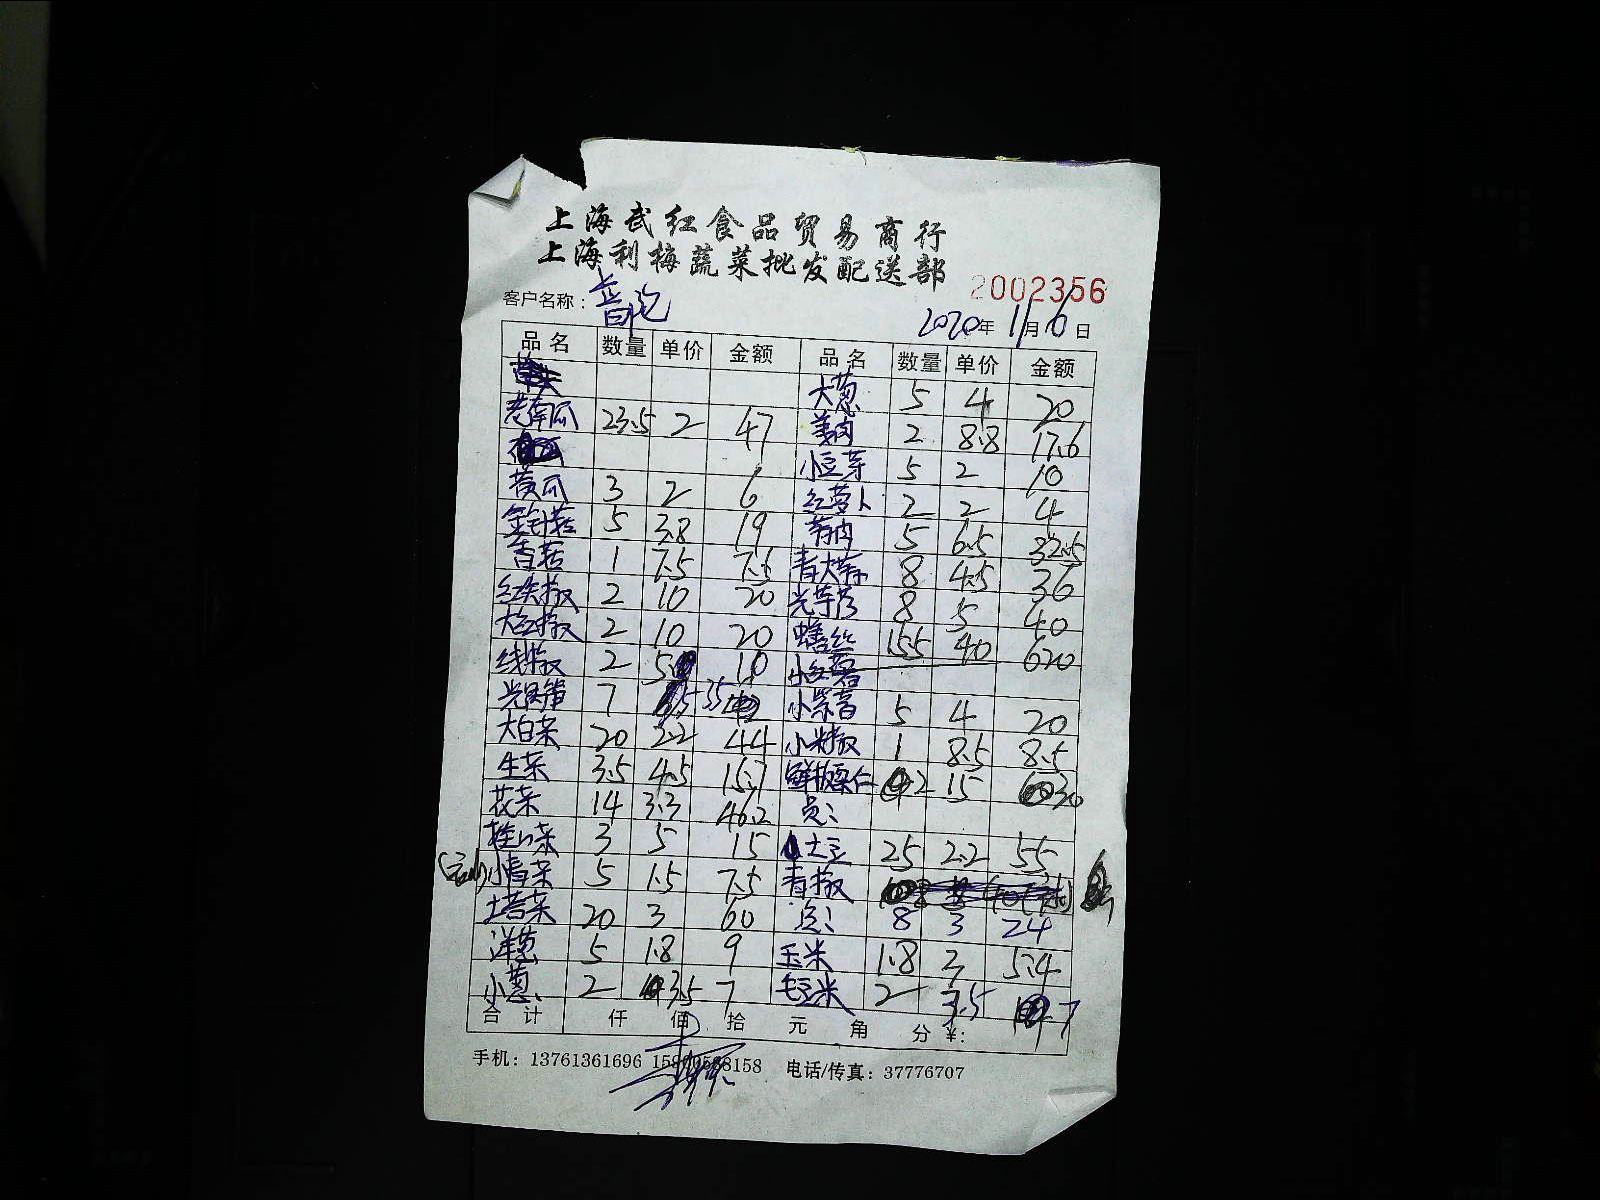 上海武红食品贸易商行
上海利梅蔬菜批发配送部
2002356
客户名称：
2020年 11月 6日
品名 数量 单价 金额 品名 数量 单价 金额
大葱 5 4 20
老南瓜 23.5 2 47 姜肉 2 8.8 17.6
小豆芽 5 2 10
黄瓜 3 2 6 红萝卜 2 2 4
金针菇 5 3.8 19 5 6.5 32.5
香菇 1 7.5 7.5 青大蒜 8 4.5 36
红尖椒 2 10 20 光芋艿 8 5 40
大红椒 2 10 20 15.5 40 620
线椒 2 5 10 小红薯
光莴笋 7 5 35 小紫薯 5 4 20
大白菜 20 2.2 44 小米椒 1 8.5 8.5
生菜 3.5 4.5 15.7 鲜板栗仁 2 15 30
花菜 14 3.3 46.2
3 5 15 土豆 25 2.2 55
小青菜 5 1.5 7.5 青椒
塔菜 20 3 60 8 3 24
洋葱 5 1.8 9 玉米 1.8 3 5.4
小葱 2 3.5 7 毛豆米 2 3.5 7
合计 仟 佰 拾 元 角 分 ¥:
手机：13761361696 158 158 电话/传真：37776707